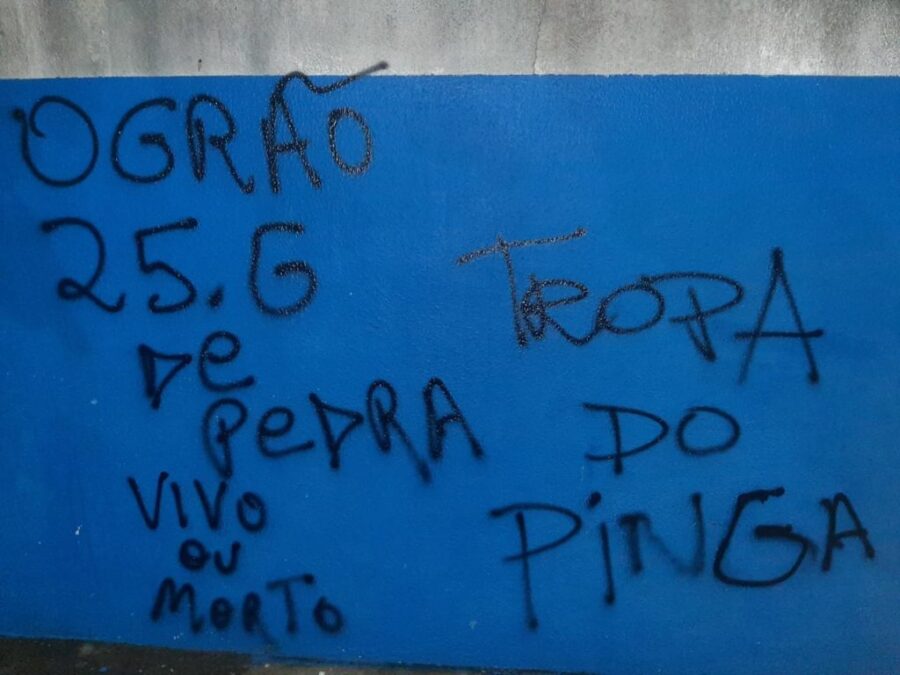 OGRÃO
25.G
De
PeDRA
VIVO
OU
MORTO
TROPA
DO
PiNGA